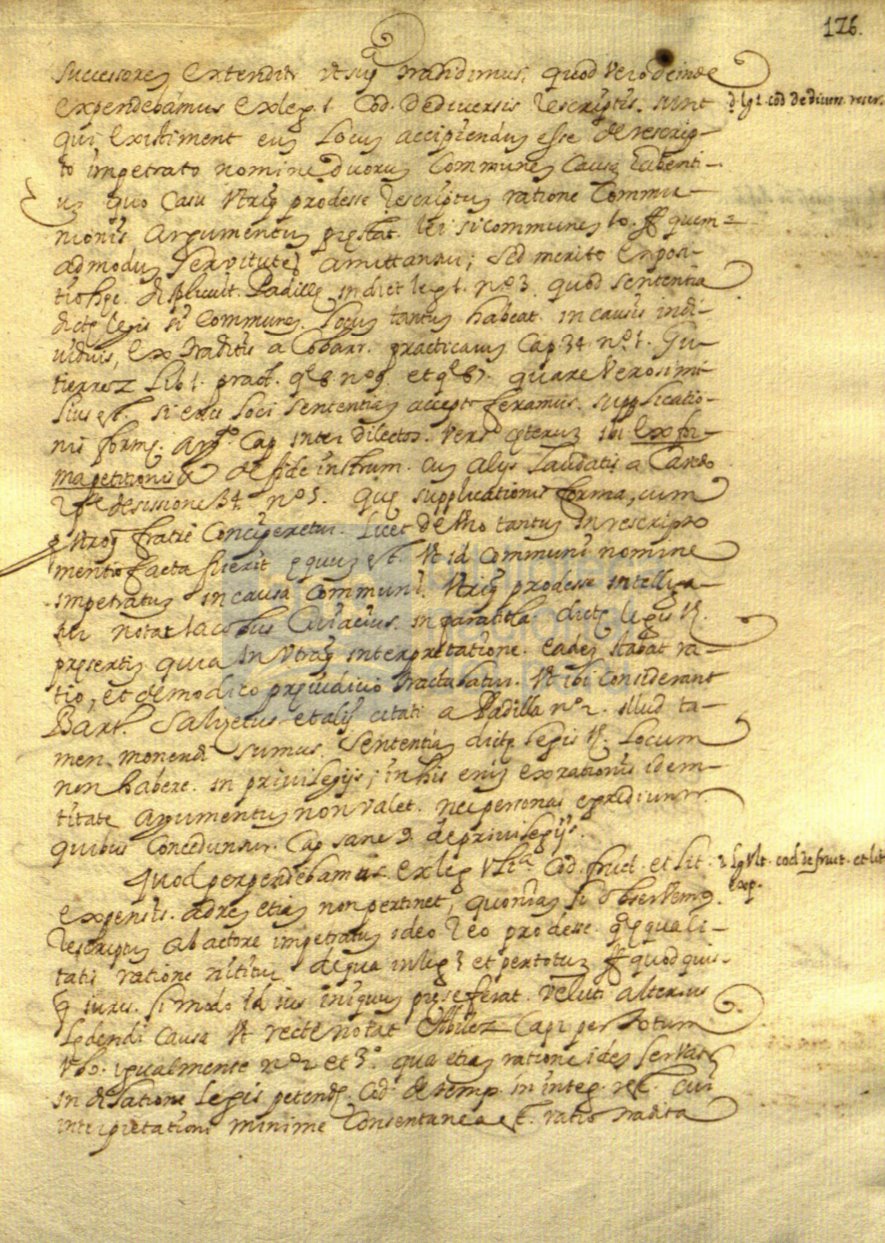 126.
successores extendit vt suis tradimus, quod vero deinde
expendebamus ex leg. 1 Cod. de diuersis rescriptis. sunt
d. lg 1 cod de diuers. rescr.
qui existiment eum locum accipiendum esse de rescrip-
to impetrato nomine duorum communem causam habenti-
um quo casu vtrique prodesse rescriptum ratione commu-
nionis argumentum præstat. lei si communem 10. ff quem-
admodum seruitutes amittantur; sed merito expos-
tio hæc displicuit Padillæ in dict leg 1. nº 3. quod sententia
dictæ legis si communem. locum tantum habeat in causis indi-
uiduis, ex traditis a Cobarr. practicarum Cap 34 nº 1. Gu-
tierrez lib 1. pract. q. 8 nº 9. et q. 87. quare verosimi-
lius est. si eius loci sententiam accepto feramus. supplicatio-
nis formæ. argº. Cap inter dilectos. vers cæterum ibi ex for-
ma petitionis de fide instrum. cum alijs laudatis a
decisione 34 nº 5. quæ supplicationis forma, cum
vtroque fratre conciperetur. licet de vno tantum in rescripto
mentio facta fuerit æquum est. vt id communi nomine
impetratum in causa communi. vtrique prodesse intelliga-
tur notat Iacobus Cuiacius. in paratitla. dictæ legis 1.
præsertim quia in vtraque interpretatione. eadem stabat ra-
tio, et de modico præiudicio tractabatur. vt ibi considerant
Bart. Salycetus et alij citati a Padilla nº 2. illud ta-
men monendi sumus sententiam dictæ legis 1. locum
non habere. in priuilegijs; in his enim ex rationis idem-
titate argumentum non valet. nec personas egrediuntur
quibus conceduntur. Cap sane 9. de priuilegijs.
Quod perpendebamus ex leg vltª. Cod. fruct. et lit.
2 lg vlt. cod de fruct. et lit
exp.
expensis. ad rem etiam non pertinet, quoniam si obseruemus.
rescriptum ab actore impetratum ideo reo prodesse. quod quali-
tatis ratione nititur de qua in leg 3 et per totum ff quod quis-
que iuris. si modo id ius iniquum præse ferat. veluti alterius
lædendi causa vt recte notat Cap 2 per totum
vbo. igualmente nº 2 et 3º. qua etiam ratione idem seruatur
in dilatione legis petendæ. Cod. de temp. in integ. rest. cui
interpretationi minime consentanea est. ratio tradita